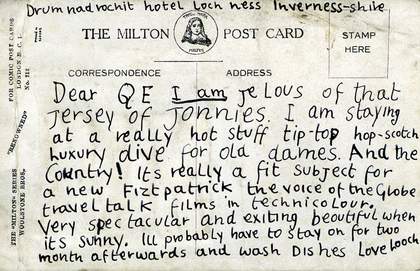 Drumnadrochit hotel Loch ness Inverness-shire
THE MILTON POST CARD
MILTON
STAMP
HERE
CORRESPONDENCE ADDRESS
Dear QE I am jelous of that
jersey of Jonnies. I am staying
at a really hot stuff tip-top hop-scotch
luxury dive for old dames. And the
Country! Its really a fit subject for
a new Fiztpatrick the voice of the Globe
travel talk films in technicolour.
Very spectacular and exiting beautiful when
its sunny. Ill probably have to stay on for two
month afterwards and wash Dishes Love Pooch
FOR COMIC POST CARDS
LONDON E.C. 1.
"RENOWNED"
THE "MILTON" SERIES
WOOLSTONE BROS.